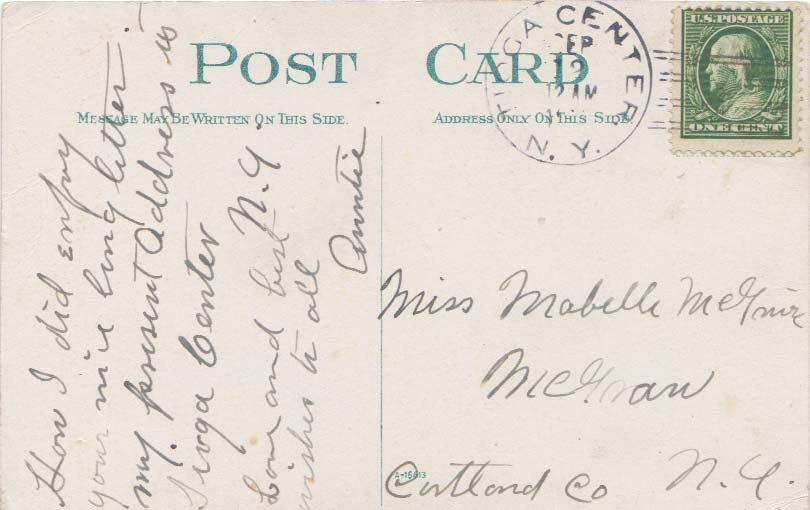 POST CARD
MESSAGE MAY BE WRITTEN ON THIS SIDE.
ADDRESS ONLY ON THIS SIDE.
TIOGA CENTER
SEP
12
12 AM
N. Y.
U.S. POSTAGE
ONE CENT
How I did enjoy
your nice long letter.
my present Address is
Tioga Center
N. Y.
Love and best
wishes to all
Auntie
Miss Mabelle McGuire
McGraw
Cortland Co N. Y.
A-15613